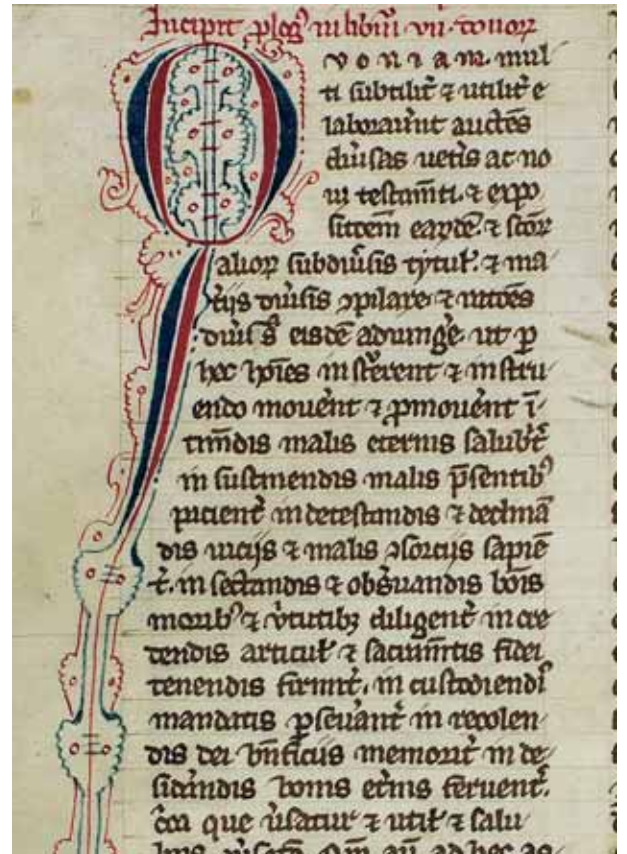 Incipit plog᷒ in libru̅ vii. donor᷒
Quoniam mul
ti subtilit̉ ⁊ utilit̉ e
laborau̅nt auct̅es
diu̅sas uet̅is ac no
ui testam̅ti. ⁊ expo
sitio̅em ear᷒de̅ ⁊ sc̅or᷒
alior᷒ subdiu̅sis tytul̵. ⁊ ma
t̅ijs diu̅sis ꝯpilare ⁊
diu̅s̅ eisde̅ adiung̅e ut ꝑ
hec ho̅ies in ⁊ instru
endo mou̅ent ⁊ ꝓmou̅ent i̅
tim̅dis malis eternis salub̅t̅
in sustinendis malis p̅sentib᷒
pacient̅ in detestandis ⁊ declina̅
dis uicijs ⁊ malis ꝯsorcijs sapie̅
t̅. in sectandis ⁊ obs̅uandis bo̅is
morib᷒ ⁊ v̅tutibꝫ diligent̅ in cre
dendis articul̵ ⁊ sac̅am̅tis fidei
tenendis firmit̅. in custodiendi᷒
mandatis ꝑseuant̅ in recolen
dis dei bn̅ficiis memorit̅ in de
sid̅andis bonis et̅nis feruent̅.
que u̅satur ⁊ util̵ ⁊ salu
ad hec